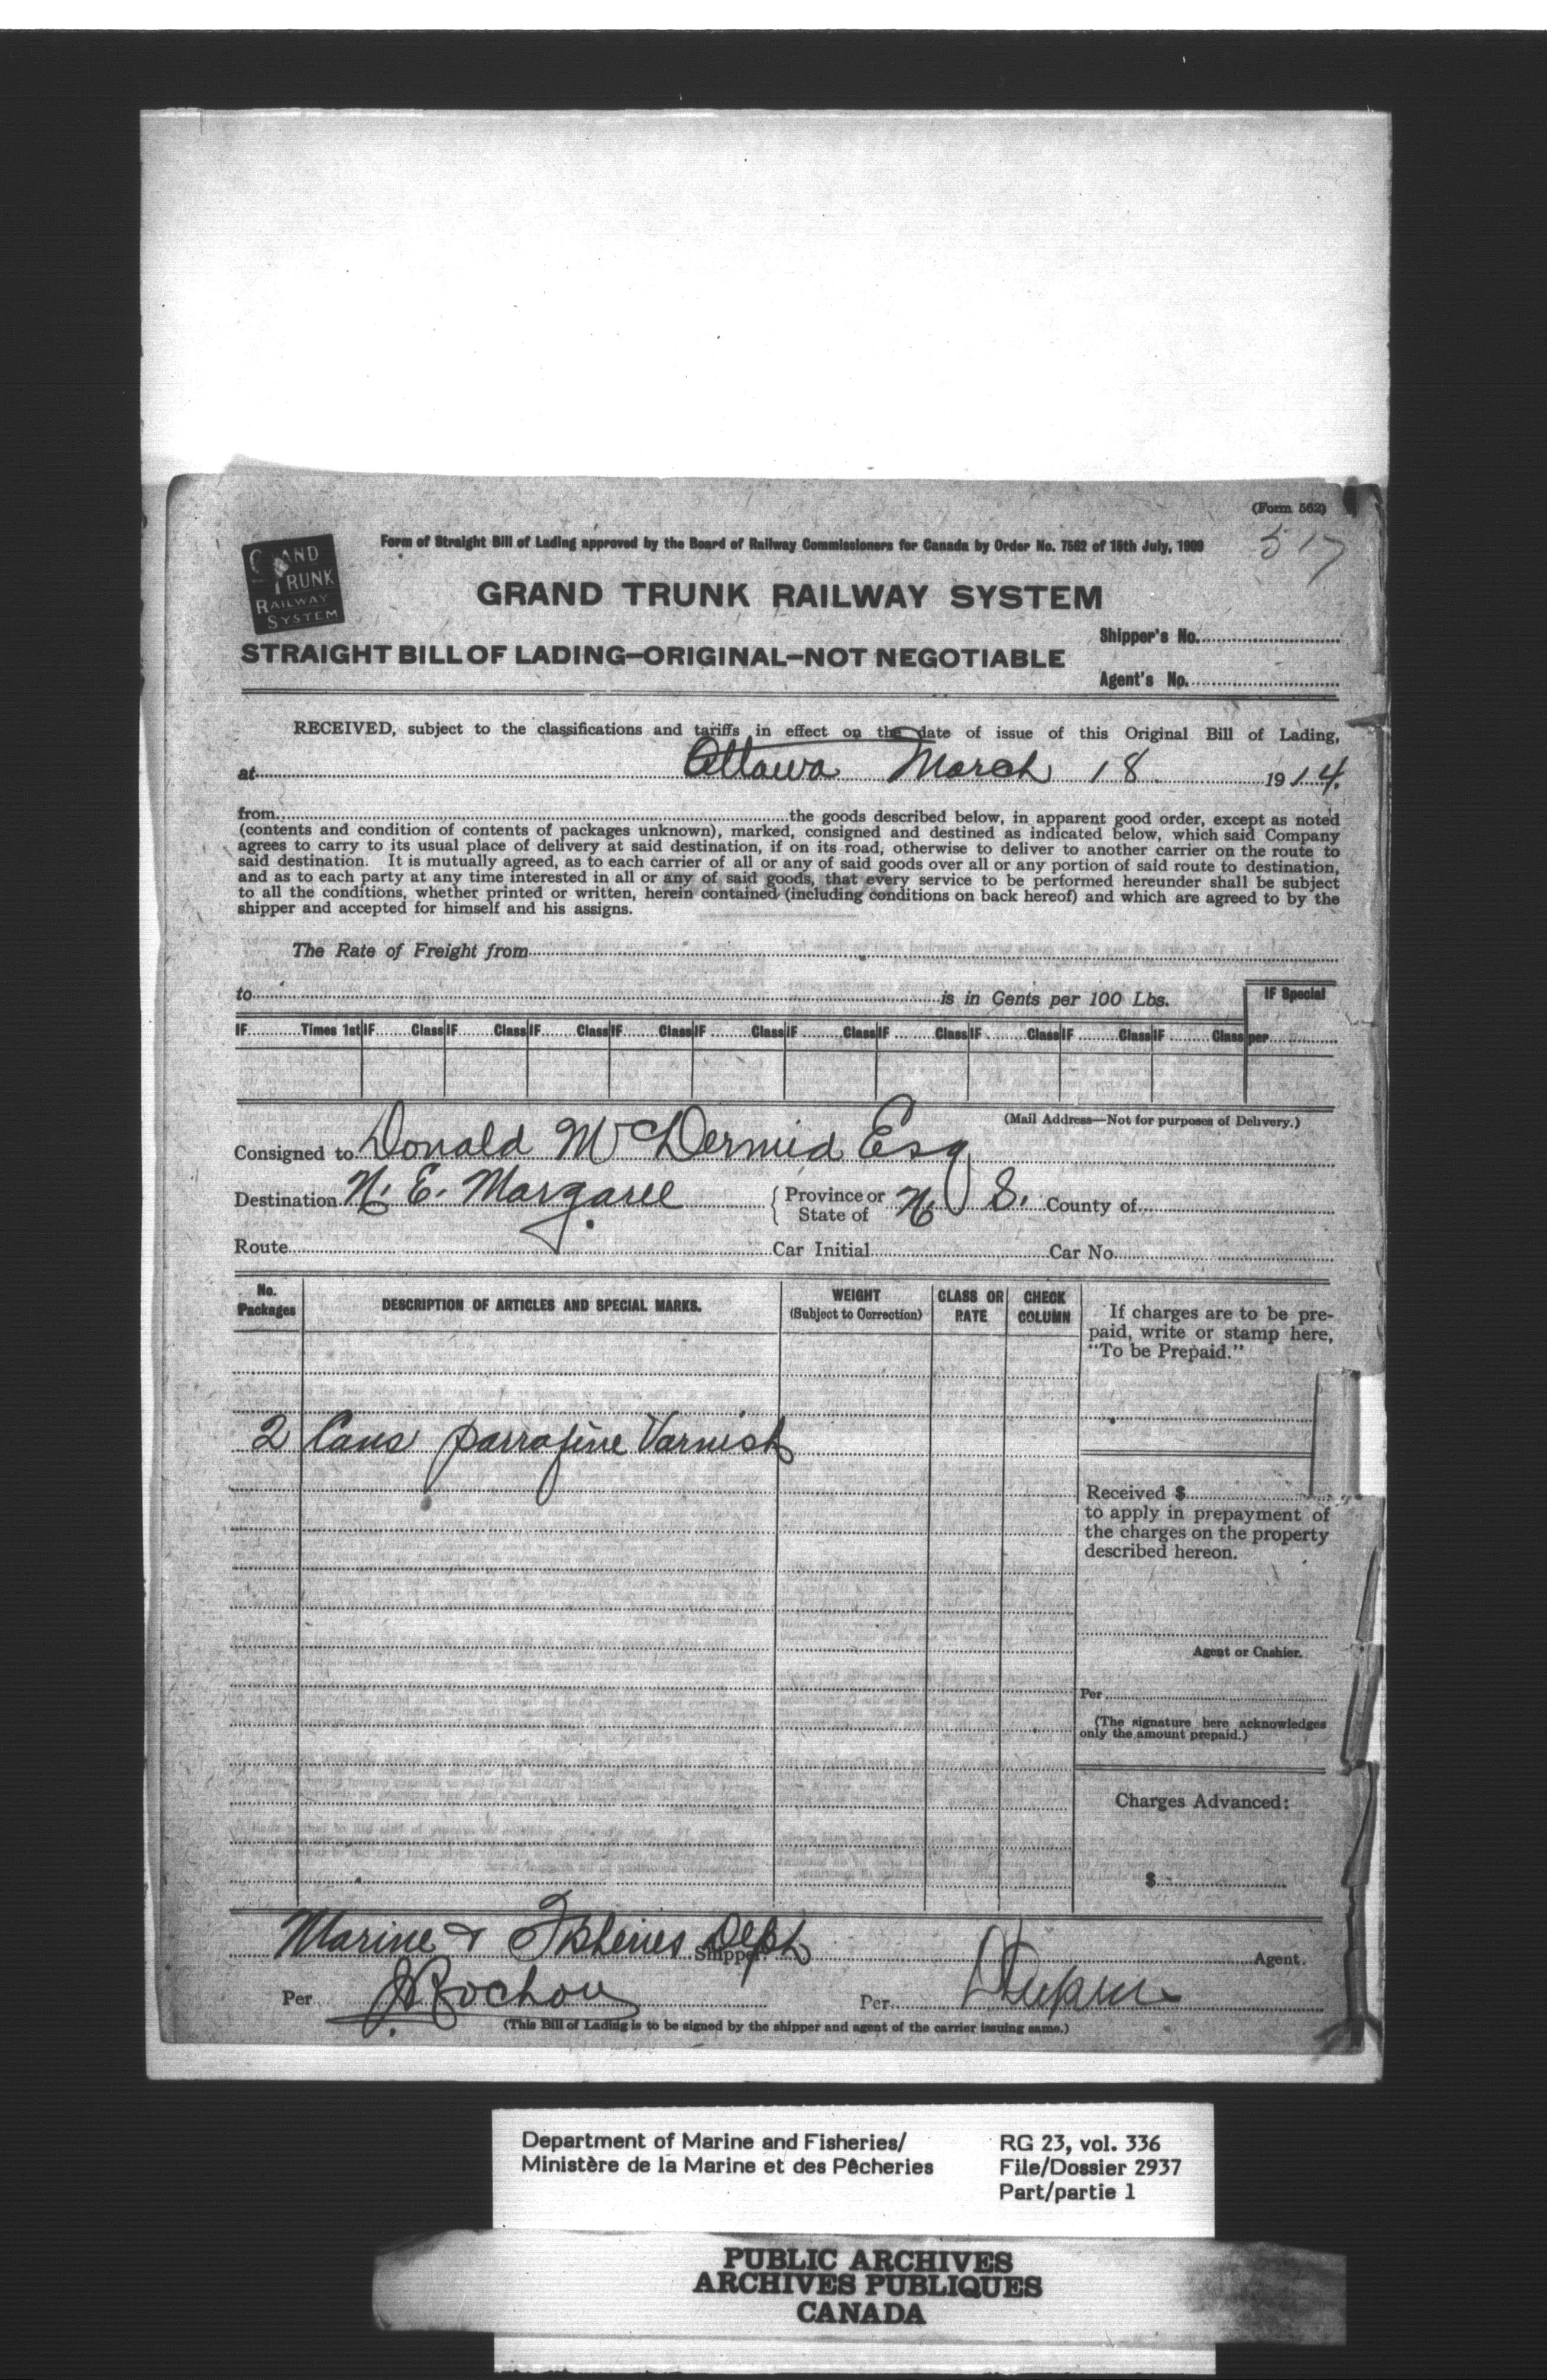 (Form 562)
517
GRAND
TRUNK
RAILWAY
SYSTEM
Form of Straight Bill of Lading approved by the Board of Railway Commissioners for Canada by Order No. 7562 of 15th July, 1909
GRAND TRUNK RAILWAY SYSTEM
Shipper's No.
STRAIGHT BILL OF LADING—ORIGINAL—NOT NEGOTIABLE
Agent's No.
RECEIVED, subject to the classifications and tariffs in effect on the date of issue of this Original Bill of Lading,
at Ottawa March 18 1914.
from the goods described below, in apparent good order, except as noted
(contents and condition of contents of packages unknown), marked, consigned and destined as indicated below, which said Company
agrees to carry to its usual place of delivery at said destination, if on its road, otherwise to deliver to another carrier on the route to
said destination. It is mutually agreed, as to each carrier of all or any of said goods over all or any portion of said route to destination,
and as to each party at any time interested in all or any of said goods, that every service to be performed hereunder shall be subject
to all the conditions, whether printed or written, herein contained (including conditions on back hereof) and which are agreed to by the
shipper and accepted for himself and his assigns.
The Rate of Freight from
to is in Cents per 100 Lbs. IF Special
IF Times 1st IF Class IF Class IF Class IF Class IF Class IF Class IF Class IF Class IF Class IF Class per
(Mail Address—Not for purposes of Delivery.)
Consigned to Donald McDermid Esq
Destination N. E. Margaree { Province or State of N. S. County of
Route Car Initial Car No.
No. Packages DESCRIPTION OF ARTICLES AND SPECIAL MARKS. WEIGHT (Subject to Correction) CLASS OR RATE CHECK COLUMN
If charges are to be pre-
paid, write or stamp here,
"To be Prepaid."
2 Cans parrafine Varnish
Received $
to apply in prepayment of
the charges on the property
described hereon.
Agent or Cashier.
Per
(The signature here acknowledges
only the amount prepaid.)
Charges Advanced:
$
Marine & Fisheries Dept Shipper. Agent.
Per J Rochon Per
(This Bill of Lading is to be signed by the shipper and agent of the carrier issuing same.)
Department of Marine and Fisheries/
Ministère de la Marine et des Pêcheries
RG 23, vol. 336
File/Dossier 2937
Part/partie 1
PUBLIC ARCHIVES
ARCHIVES PUBLIQUES
CANADA